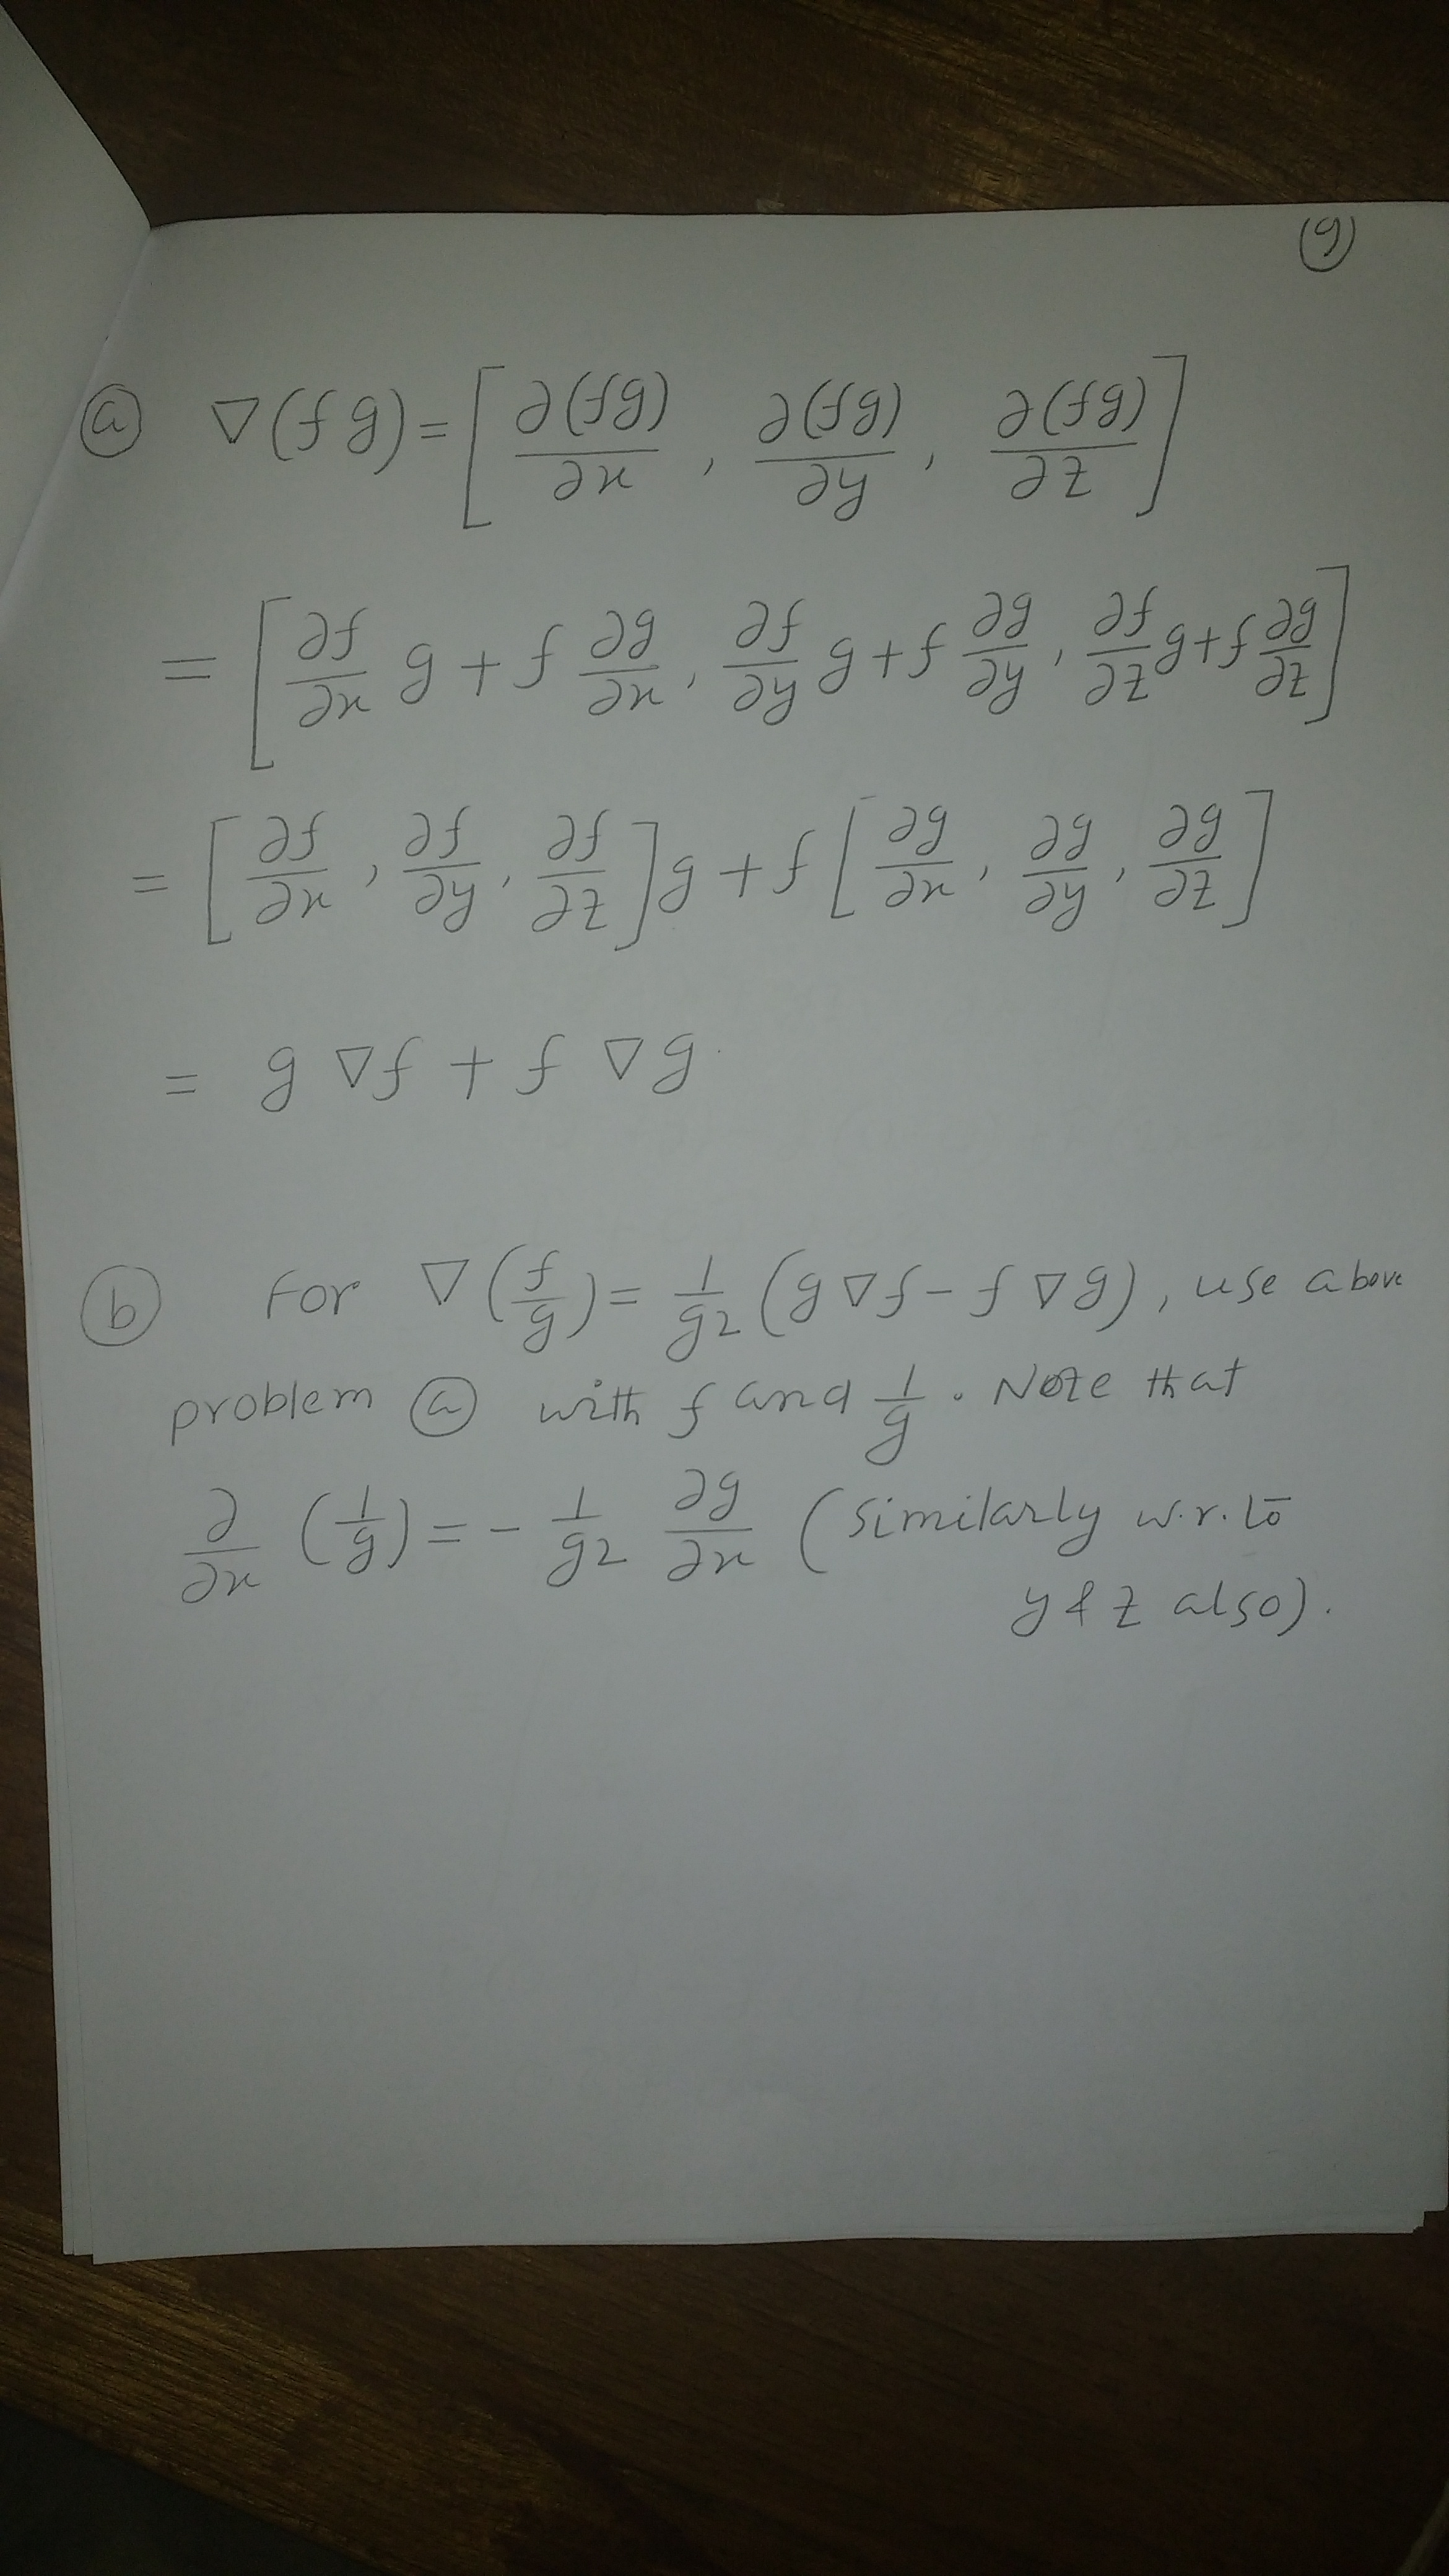 (9)
(a) ∇(fg) = [∂(fg)/∂x, ∂(fg)/∂y, ∂(fg)/∂z]
= [∂f/∂x g + f ∂g/∂x, ∂f/∂y g + f ∂g/∂y, ∂f/∂z g + f ∂g/∂z]
= [∂f/∂x, ∂f/∂y, ∂f/∂z] g + f [∂g/∂x, ∂g/∂y, ∂g/∂z]
= g ∇f + f ∇g.
(b) For ∇(f/g) = 1/g² (g ∇f − f ∇g), use above
problem (a) with f and 1/g. Note that
∂/∂x (1/g) = − 1/g² ∂g/∂x (similarly w.r.to
y & z also).